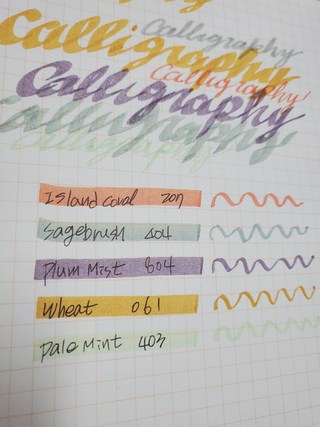 Calligraphy
Calligraphy
Calligraphy
Calligraphy
Calligraphy
Calligraphy
Island Coral 207
Sagebrush 404
Plum Mist 604
Wheat 061
Pale Mint 403